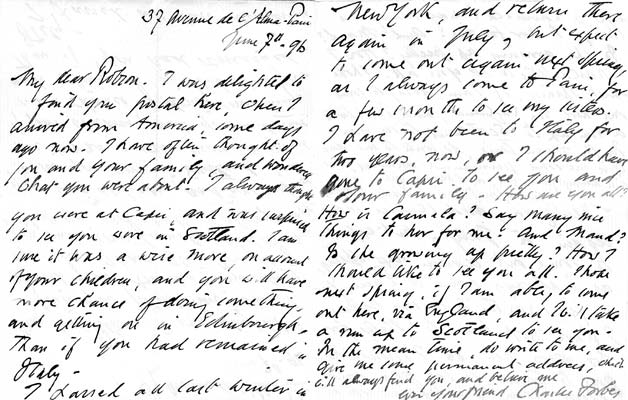 37 Avenue de l'Alma - Paris
June 7th 96
My dear Robson. I was delighted to
find your postal here, when I
arrived from America, some days
ago now. I have often thought of
you and your family, and wondered
what you were about. I always thought
you were at Capri, and was surprised
to see you were in Scotland. I am
sure it was a wise move, on account
of your children, and you will have
more chance of doing something,
and getting on in Edinburgh,
than if you had remained in
Italy -
I passed all last winter in
New York, and return there
again in July, but expect
to come out again next spring,
as I always come to Paris, for
a few months to see my sisters.
I have not been to Italy for
two years, now, or I should have
gone to Capri to see you and
your family - How are you all?
How is Carmela? Say many nice
things to her for me. And Maud?
Is she growing up pretty? How I
should like to see you all. I hope
next spring, if I am able, to come
out here, via England, and I'll take
a run up to Scotland to see you -
In the mean time, do write to me, and
give me some permanent address, which
will always find you, and believe me
ever your friend Charles Forbes